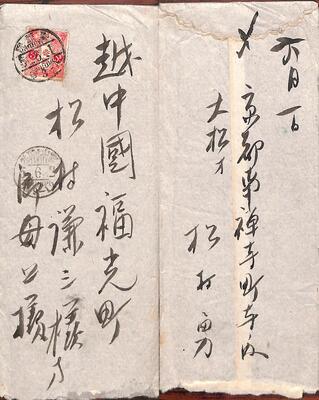 越中國福光町
松村謙三様方
御母公様
六月一日
京都南禅寺町寺内
大松方
松村勇